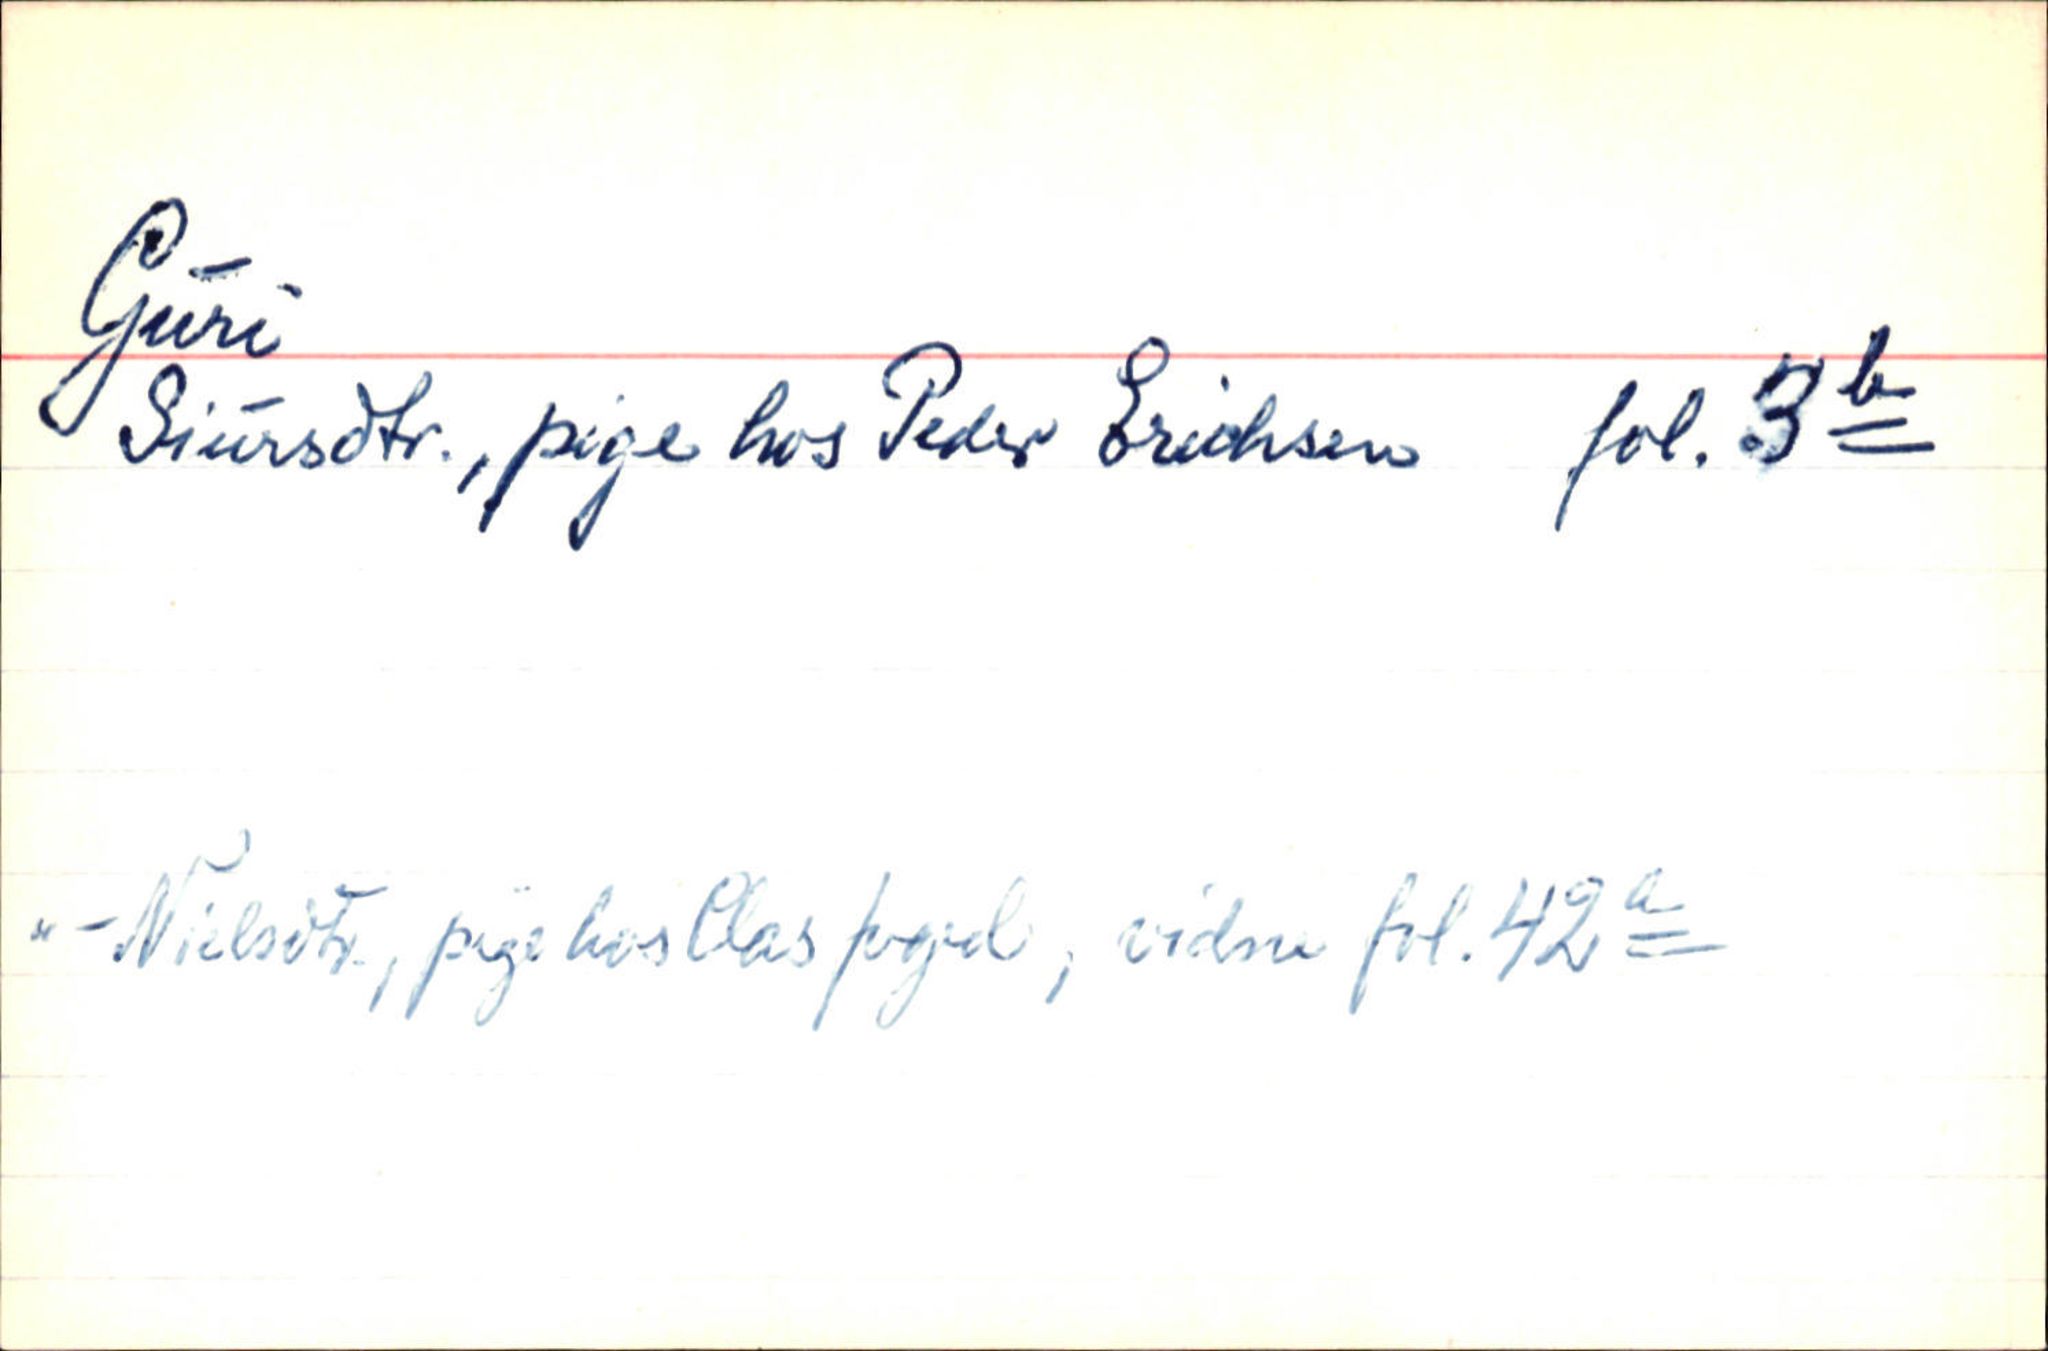 Guri
Siursdtr., pige hos Peder Erichsen fol. 3b
"- Nielsdtr., pige hos Clas foged, vidne fol. 42a